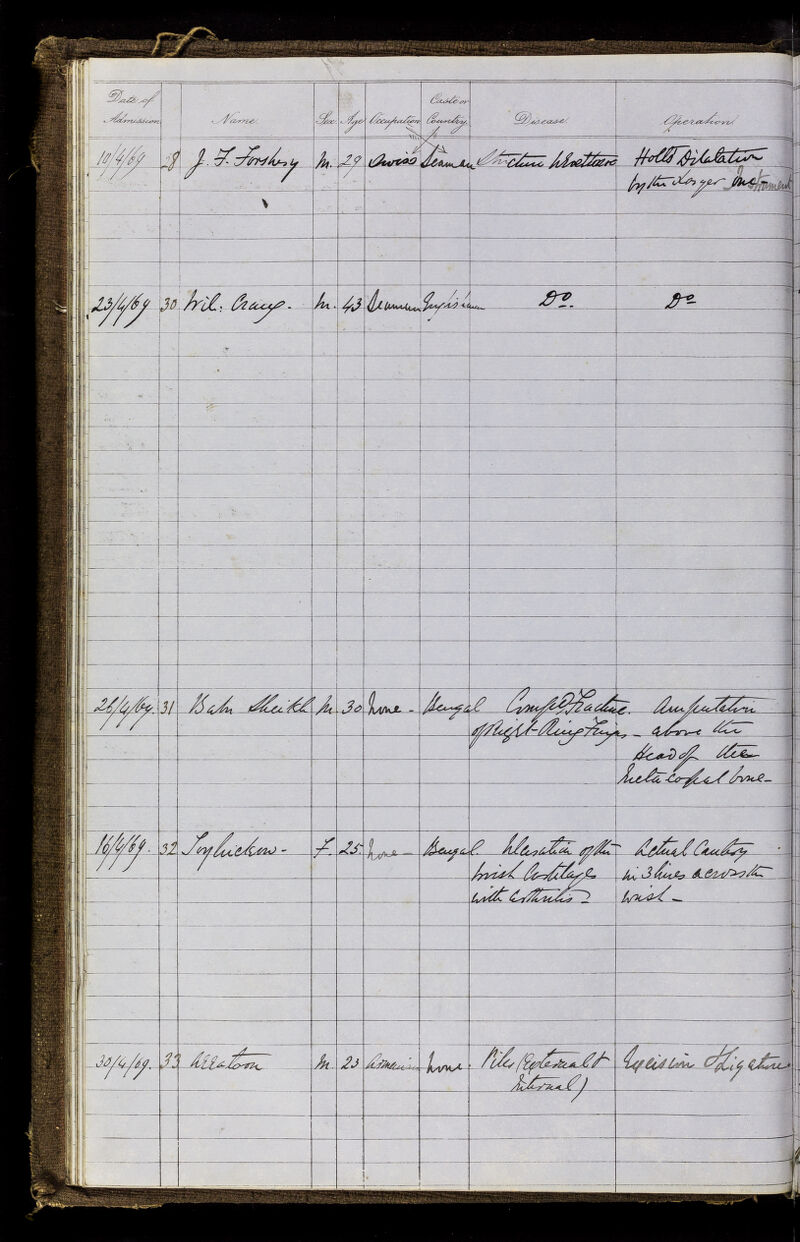 Date of Admission Name Sex Age Occupation Caste or Country Disease Operation
10/4/69 28 J. F. M. 29 Swiss Seaman Stricture Urethra Holts Dilatation
by the Larger Instrument
23/4/69 30 Wil: Craig. M. 43 Seaman Englishman Do. Do
26/4/69. 31 Babu Sheikh M. 30 None - Bengal Comp'd Fracture. Amputation
of Right Ring Finger - above the
Head of the
Metacarpal bone -
16/4/69. 32 F. 25. None - Bengal. Ulceration of the Actual Cautery
wrist Cartilages in 3 lines across the
with arthritis - wrist -
30/4/69. 33 Arratoon M. 23 Armenian None. Piles (External & Excision & Ligature
Internal)